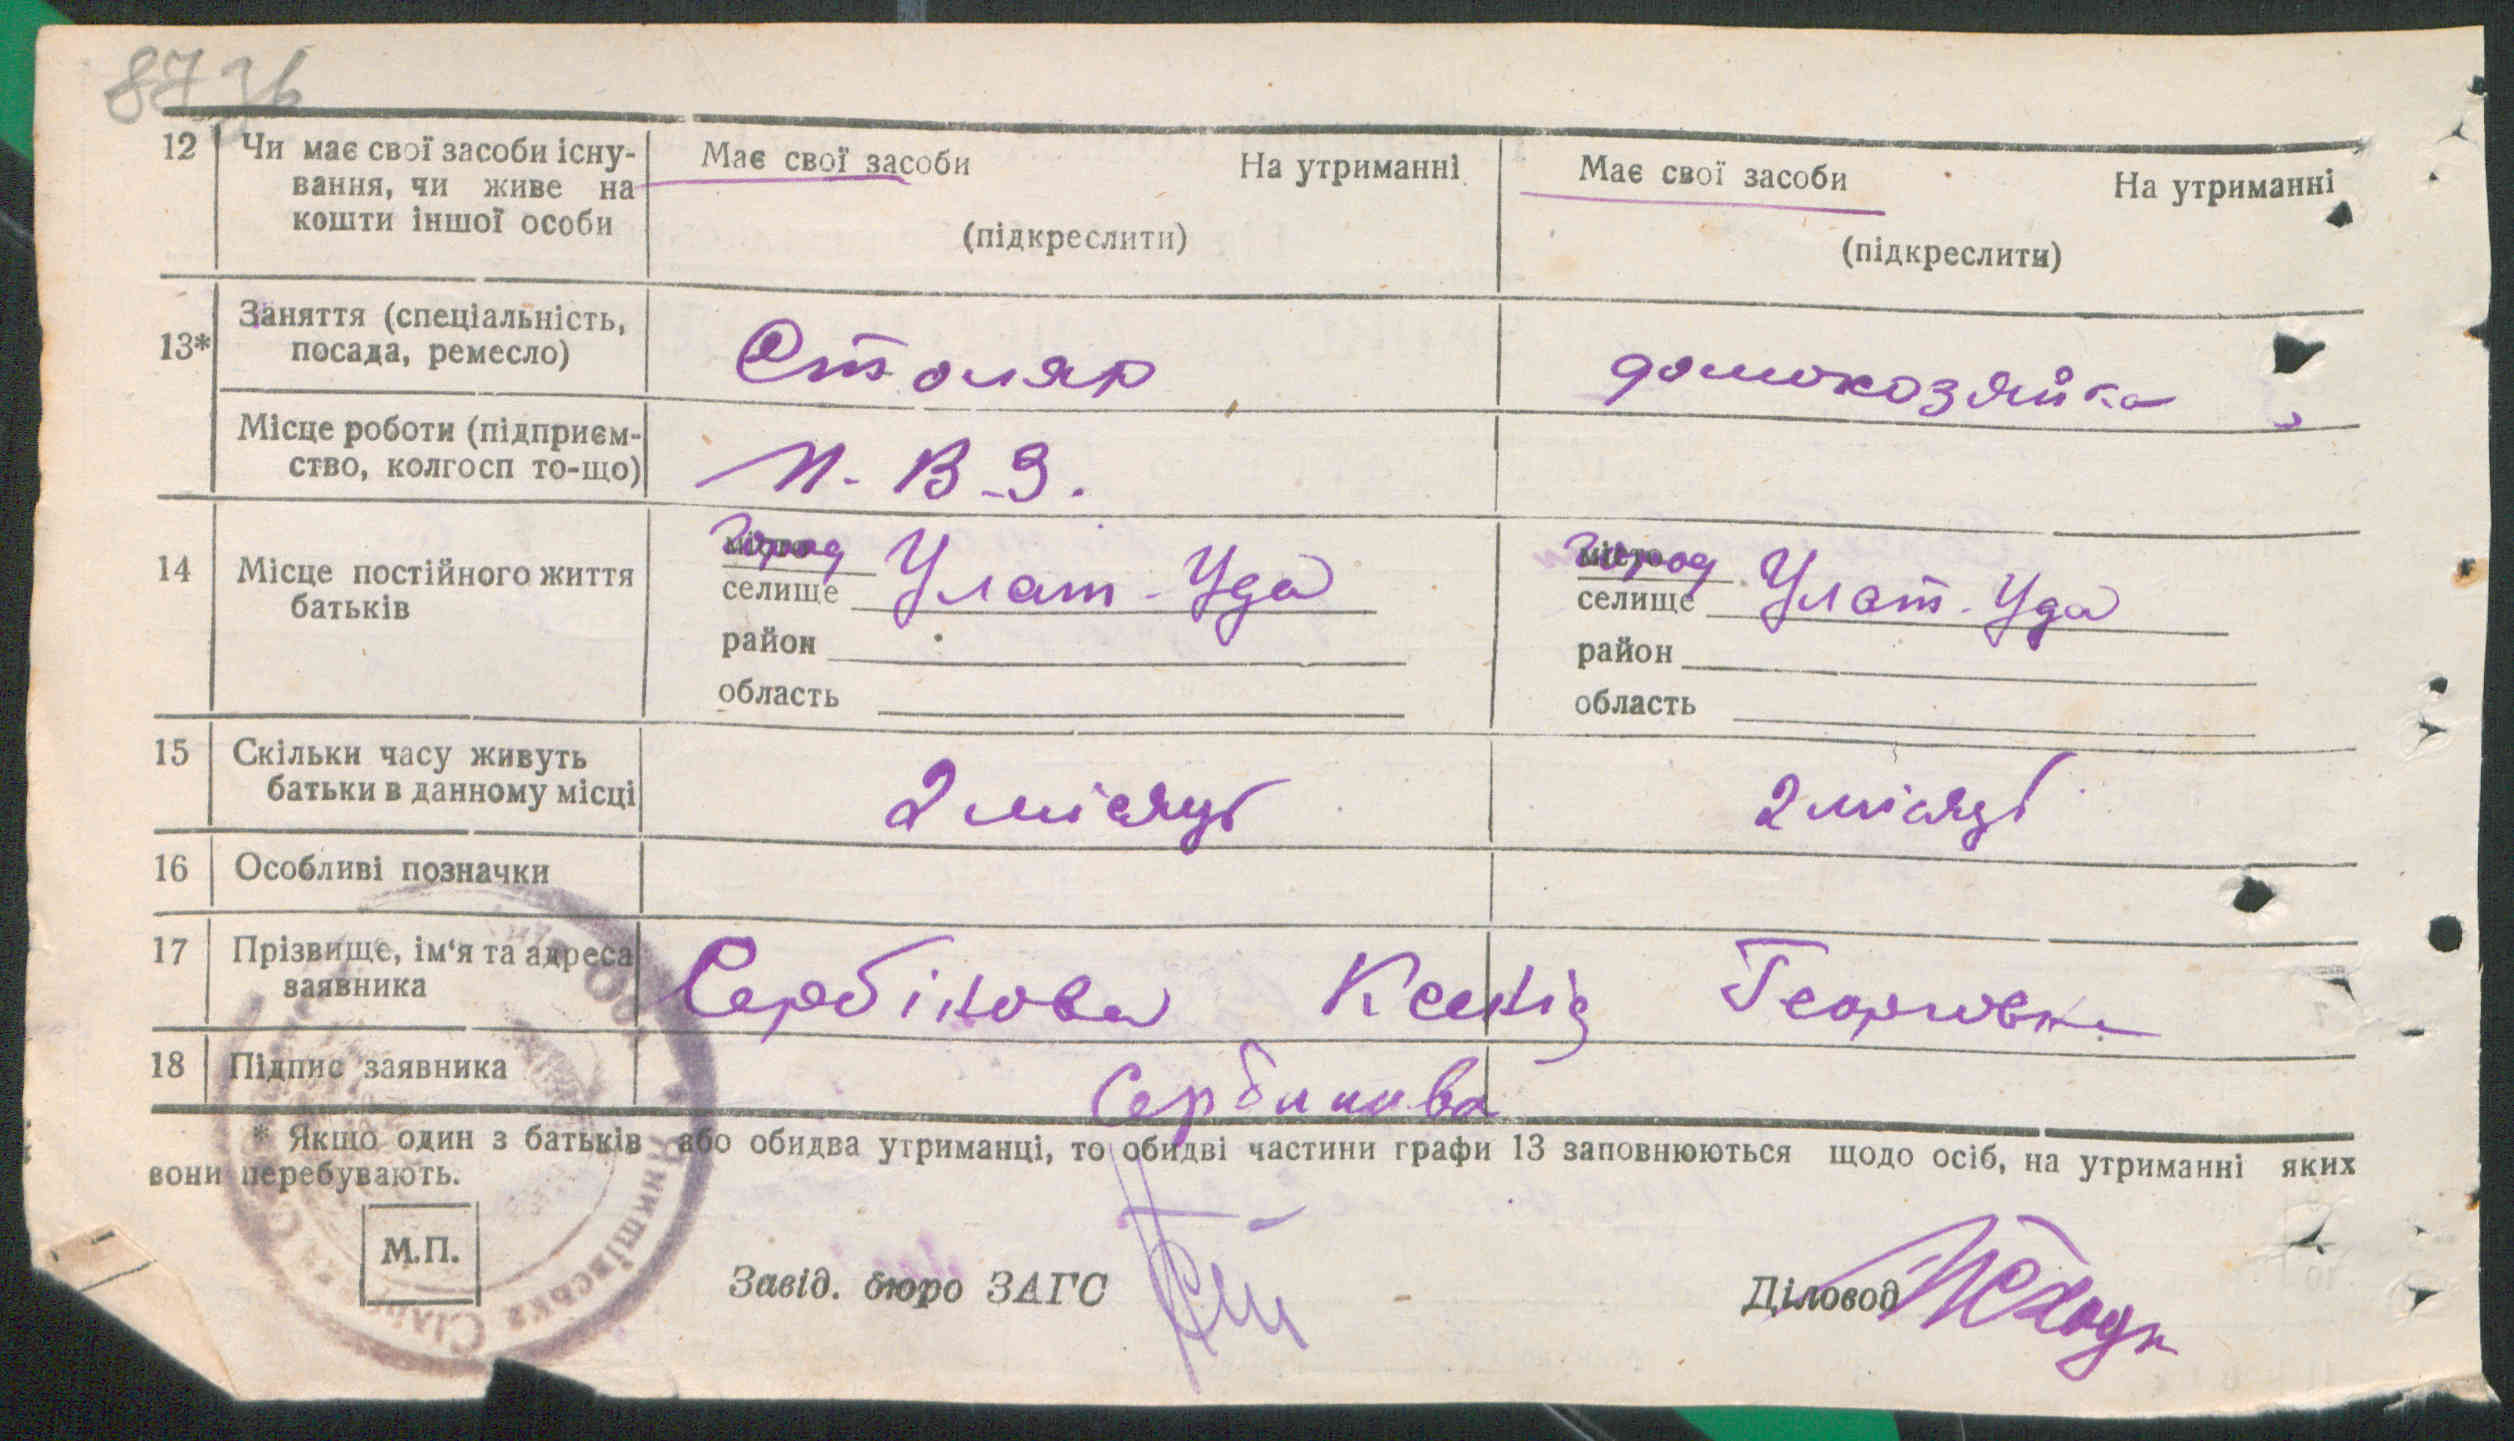 87 зв
12 Чи має свої засоби існу- Має свої засоби На утриманні Має свої засоби На утриманні
вання, чи живе на
кошти іншої особи (підкреслити) (підкреслити)
13* Заняття (спеціальність, Столяр домохозяйка
посада, ремесло)
Місце роботи (підприєм- П. В. З.
ство, колгосп то-що)
14 Місце постійного життя город Улат-Уда город Улат-Уда
батьків селище селище
район район
область область
15 Скільки часу живуть 2 місяці 2 місяці
батьки в данному місці
16 Особливі позначки
17 Прізвище, ім'я та адреса Сербінова Ксенія Георговна
заявника
18 Підпис заявника Сербинова
* Якщо один з батьків або обидва утриманці, то обидві частини графи 13 заповнюються щодо осіб, на утриманні яких
вони перебувають.
М.П.
Завід. бюро ЗАГС Діловод